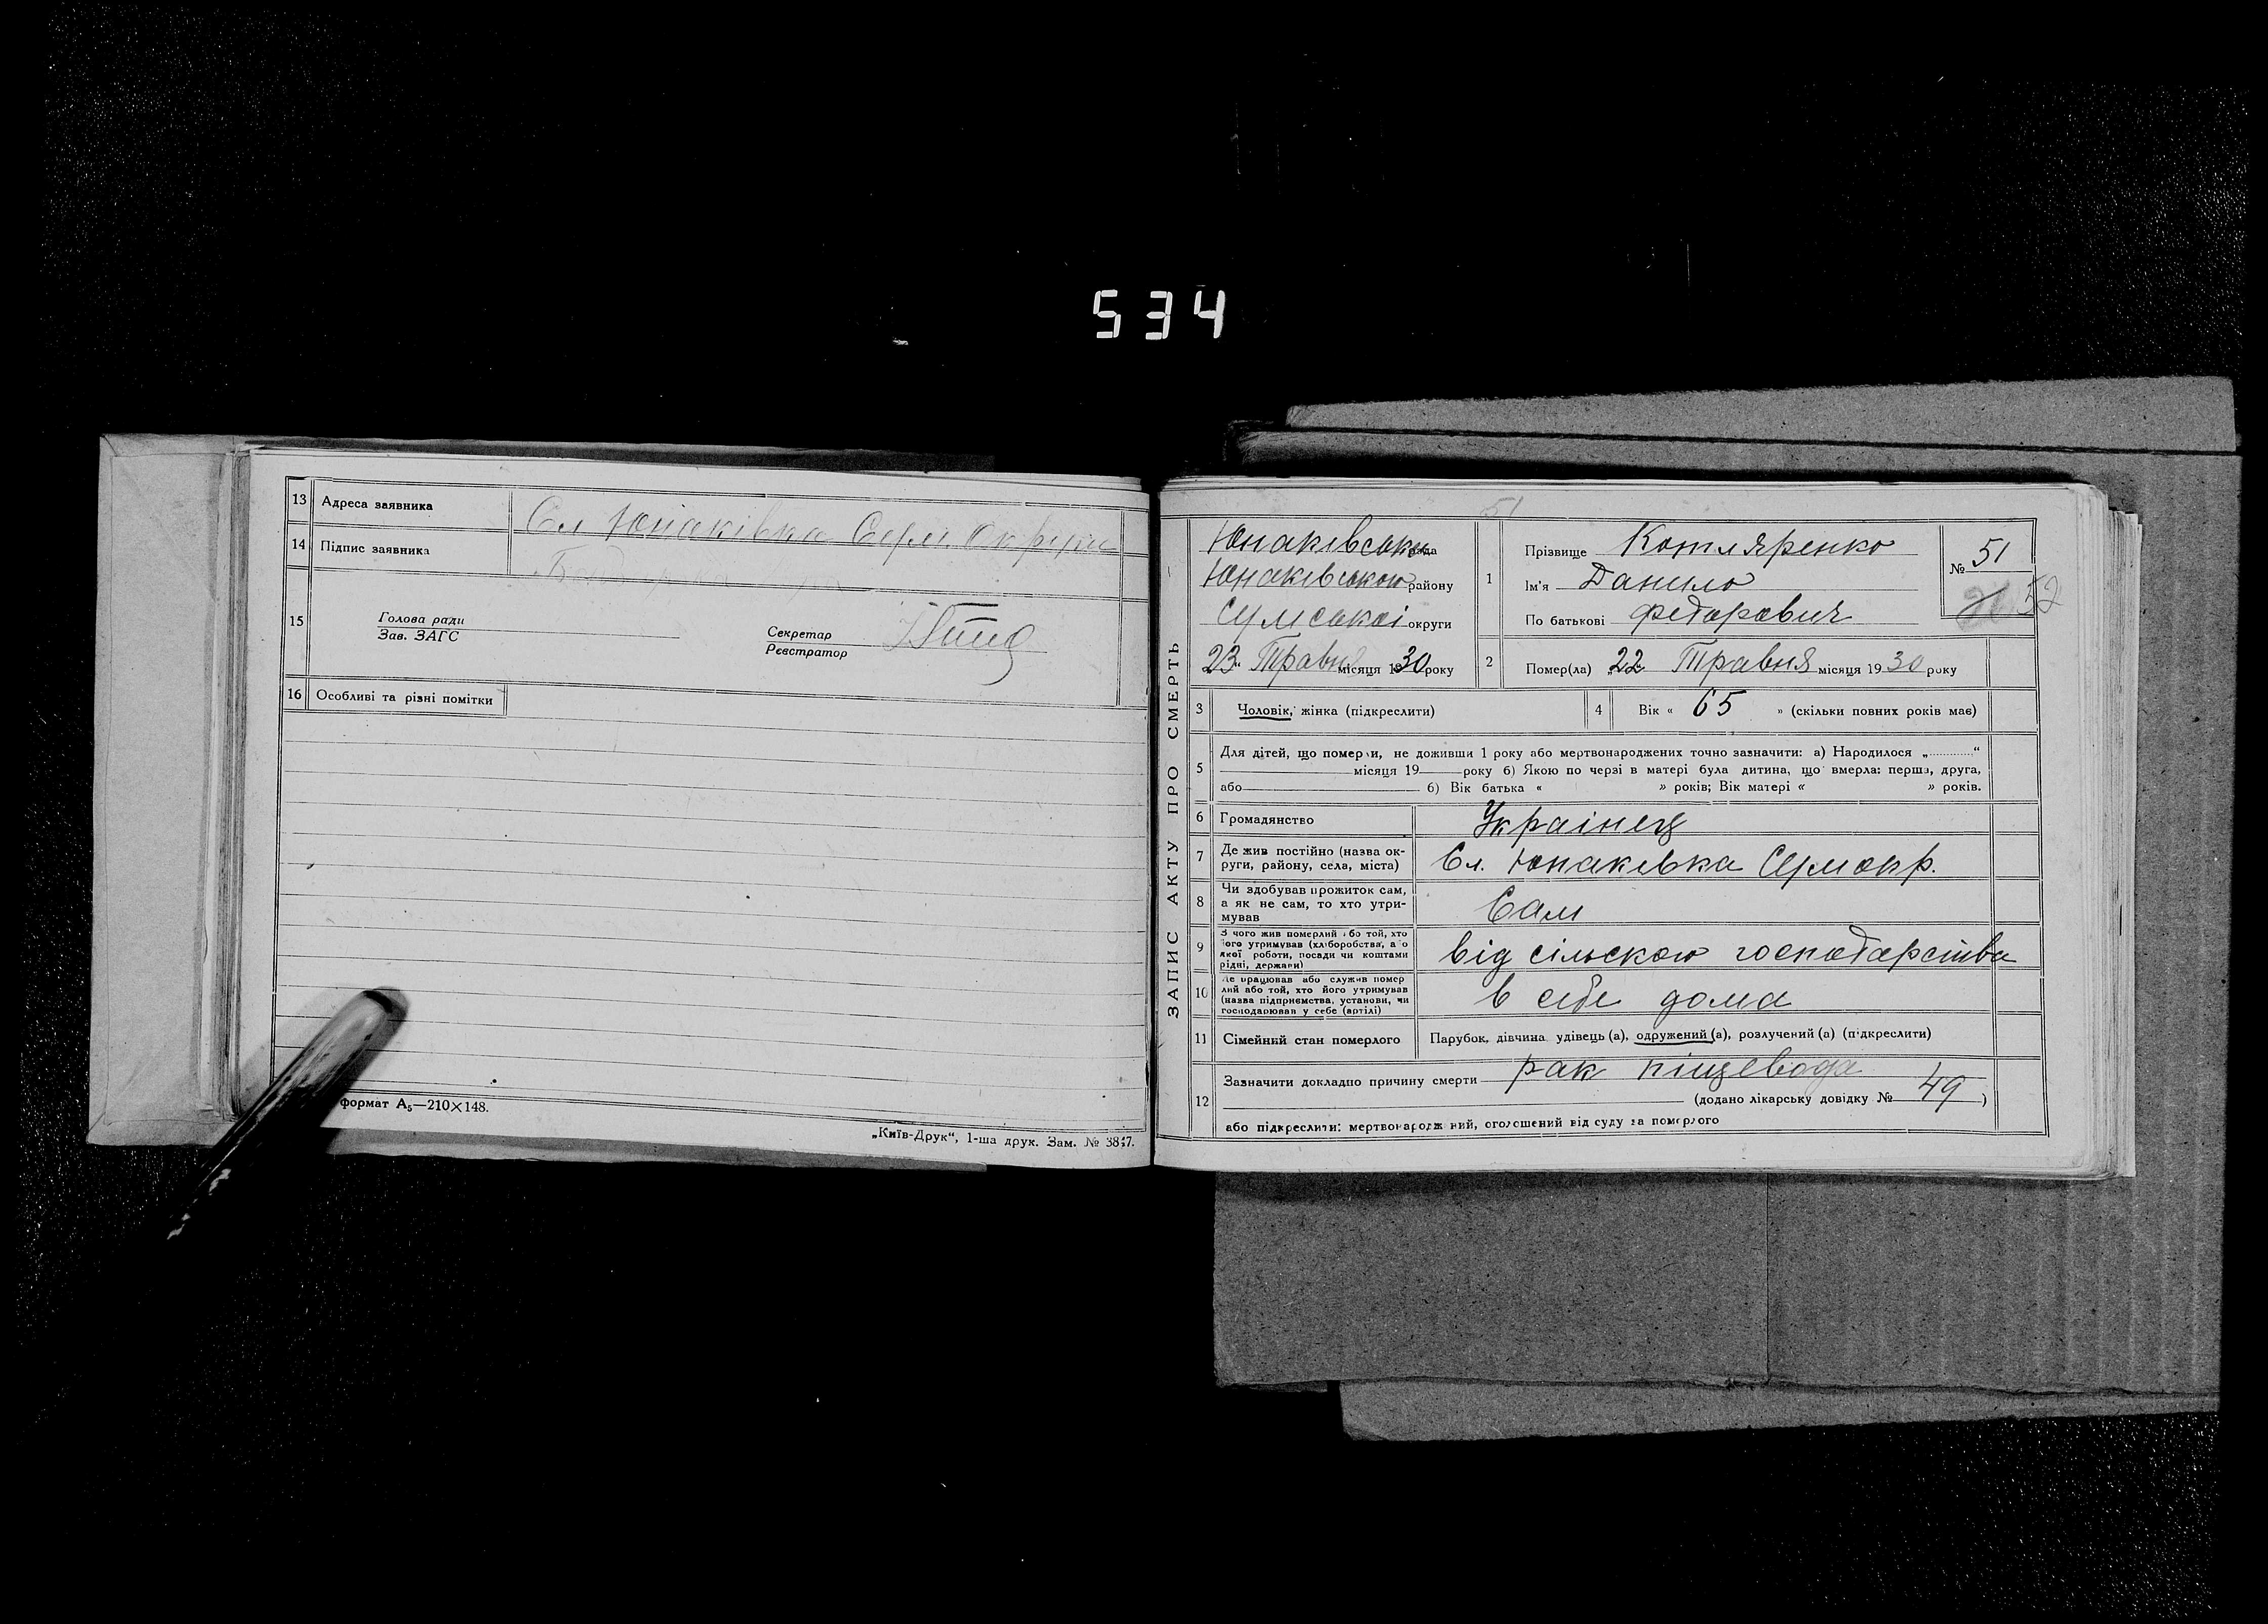 534
13 Адреса заявника Сл Юнаківка Сум. Округи
14 Підпис заявника
15 Голова ради
Зав. ЗАГС
Секретар
Реєстратор
16 Особливі та різні помітки
формат А5—210×148.
„Київ-Друк“, 1-ша друк. Зам. № 3847.
51
ЗАПИС АКТУ ПРО СМЕРТЬ
Юнаківська рада
Юнаківського району
Сумської округи
23 „ Травня місяця 1930 року
1 Прізвище Котляренко
Ім'я Данило
По батькові Федорович
№ 51
52
2 Помер(ла) „22 Травня місяця 1930 року
3 Чоловік, жінка (підкреслити)
4 Вік « 65 » (скільки повних років має)
5 Для дітей, що померли, не доживши 1 року або мертвонароджених точно зазначити: а) Народилося „............“
місяця 19 року б) Якою по черзі в матері була дитина, що вмерла: перша, друга,
або б) Вік батька « » років; Вік матері « » років.
6 Громадянство Украінец
7 Де жив постійно (назва округи, району, села, міста) Сл. Юнаківка Сумокр.
8 Чи здобував прожиток сам,
а як не сам, то хто утримував Сам
9 З чого жив померлий або той, хто
його утримував (хліборобства, або
якої роботи, посади чи коштами
рідні, держави) від сільского господарства
10 Де працював або служив помер
лий або той, хто його утримував
(назва підприємства, установи, чи
господарював у себе (артілі) в себе дома
11 Сімейний стан померлого Парубок, дівчина удівець (а), одружений (а), розлучений (а) (підкреслити)
12 Зазначити докладно причину смерти рак піщевода
(додано лікарську довідку № 49 )
або підкреслити: мертвонароджений, оголошений від суду за померлого